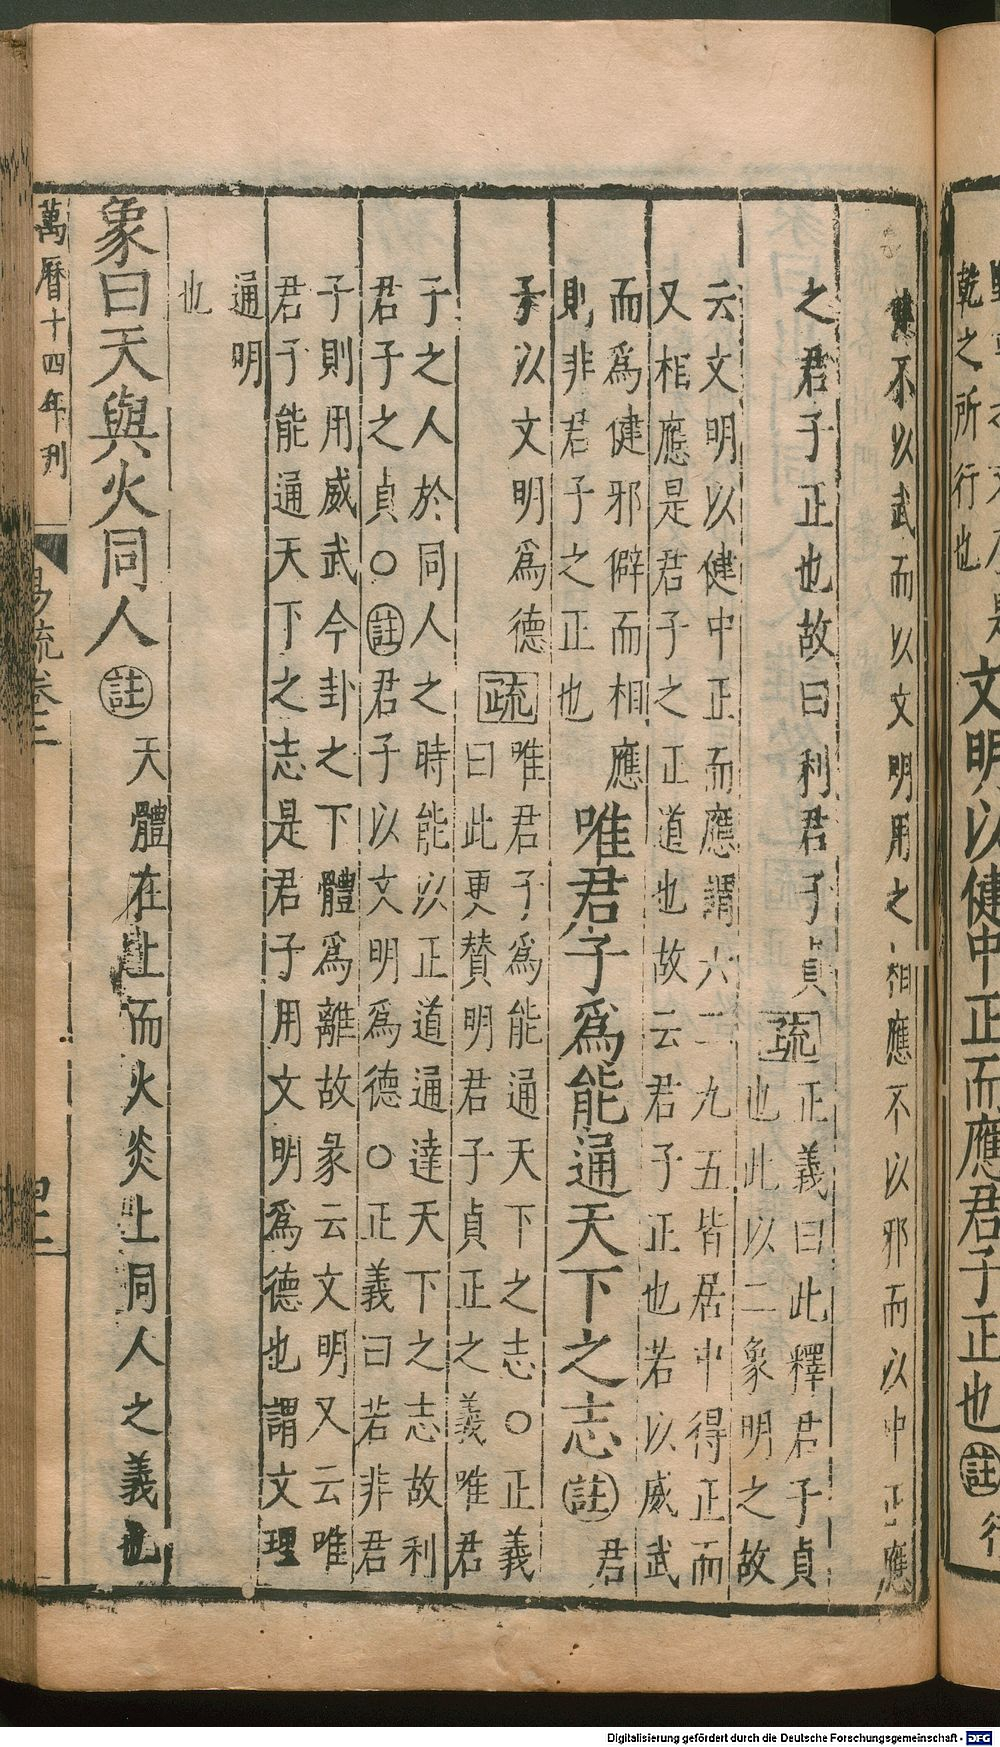 乾之所行也
文明以健中正而應君子正也註行
健不以武而以文明用之相應不以邪而以中正應
之君子正也故曰利君子貞疏正義曰此釋君子貞
也此以二象明之故
云文明以健中正而應謂六二九五皆居中得正而
又相應是君子之正道也故云君子正也若以威武
而爲健邪僻而相應
則非君子之正也
唯君子爲能通天下之志註君
子以文明爲德疏唯君子爲能通天下之志○正義
曰此更贊明君子貞正之義唯君
于之人於同人之時能以正道通達天下之志故利
君子之貞○註君子以文明爲德○正義曰若非君
子則用威武今卦之下體爲離故彖云文明又云唯
君子能通天下之志是君子用文明爲德也謂文理
通明
也
象曰天與火同人註天體在上而火炎上同人之義也
萬曆十四年刊
易疏卷三
Digitalisierung gefördert durch die Deutsche Forschungsgemeinschaft - DFG